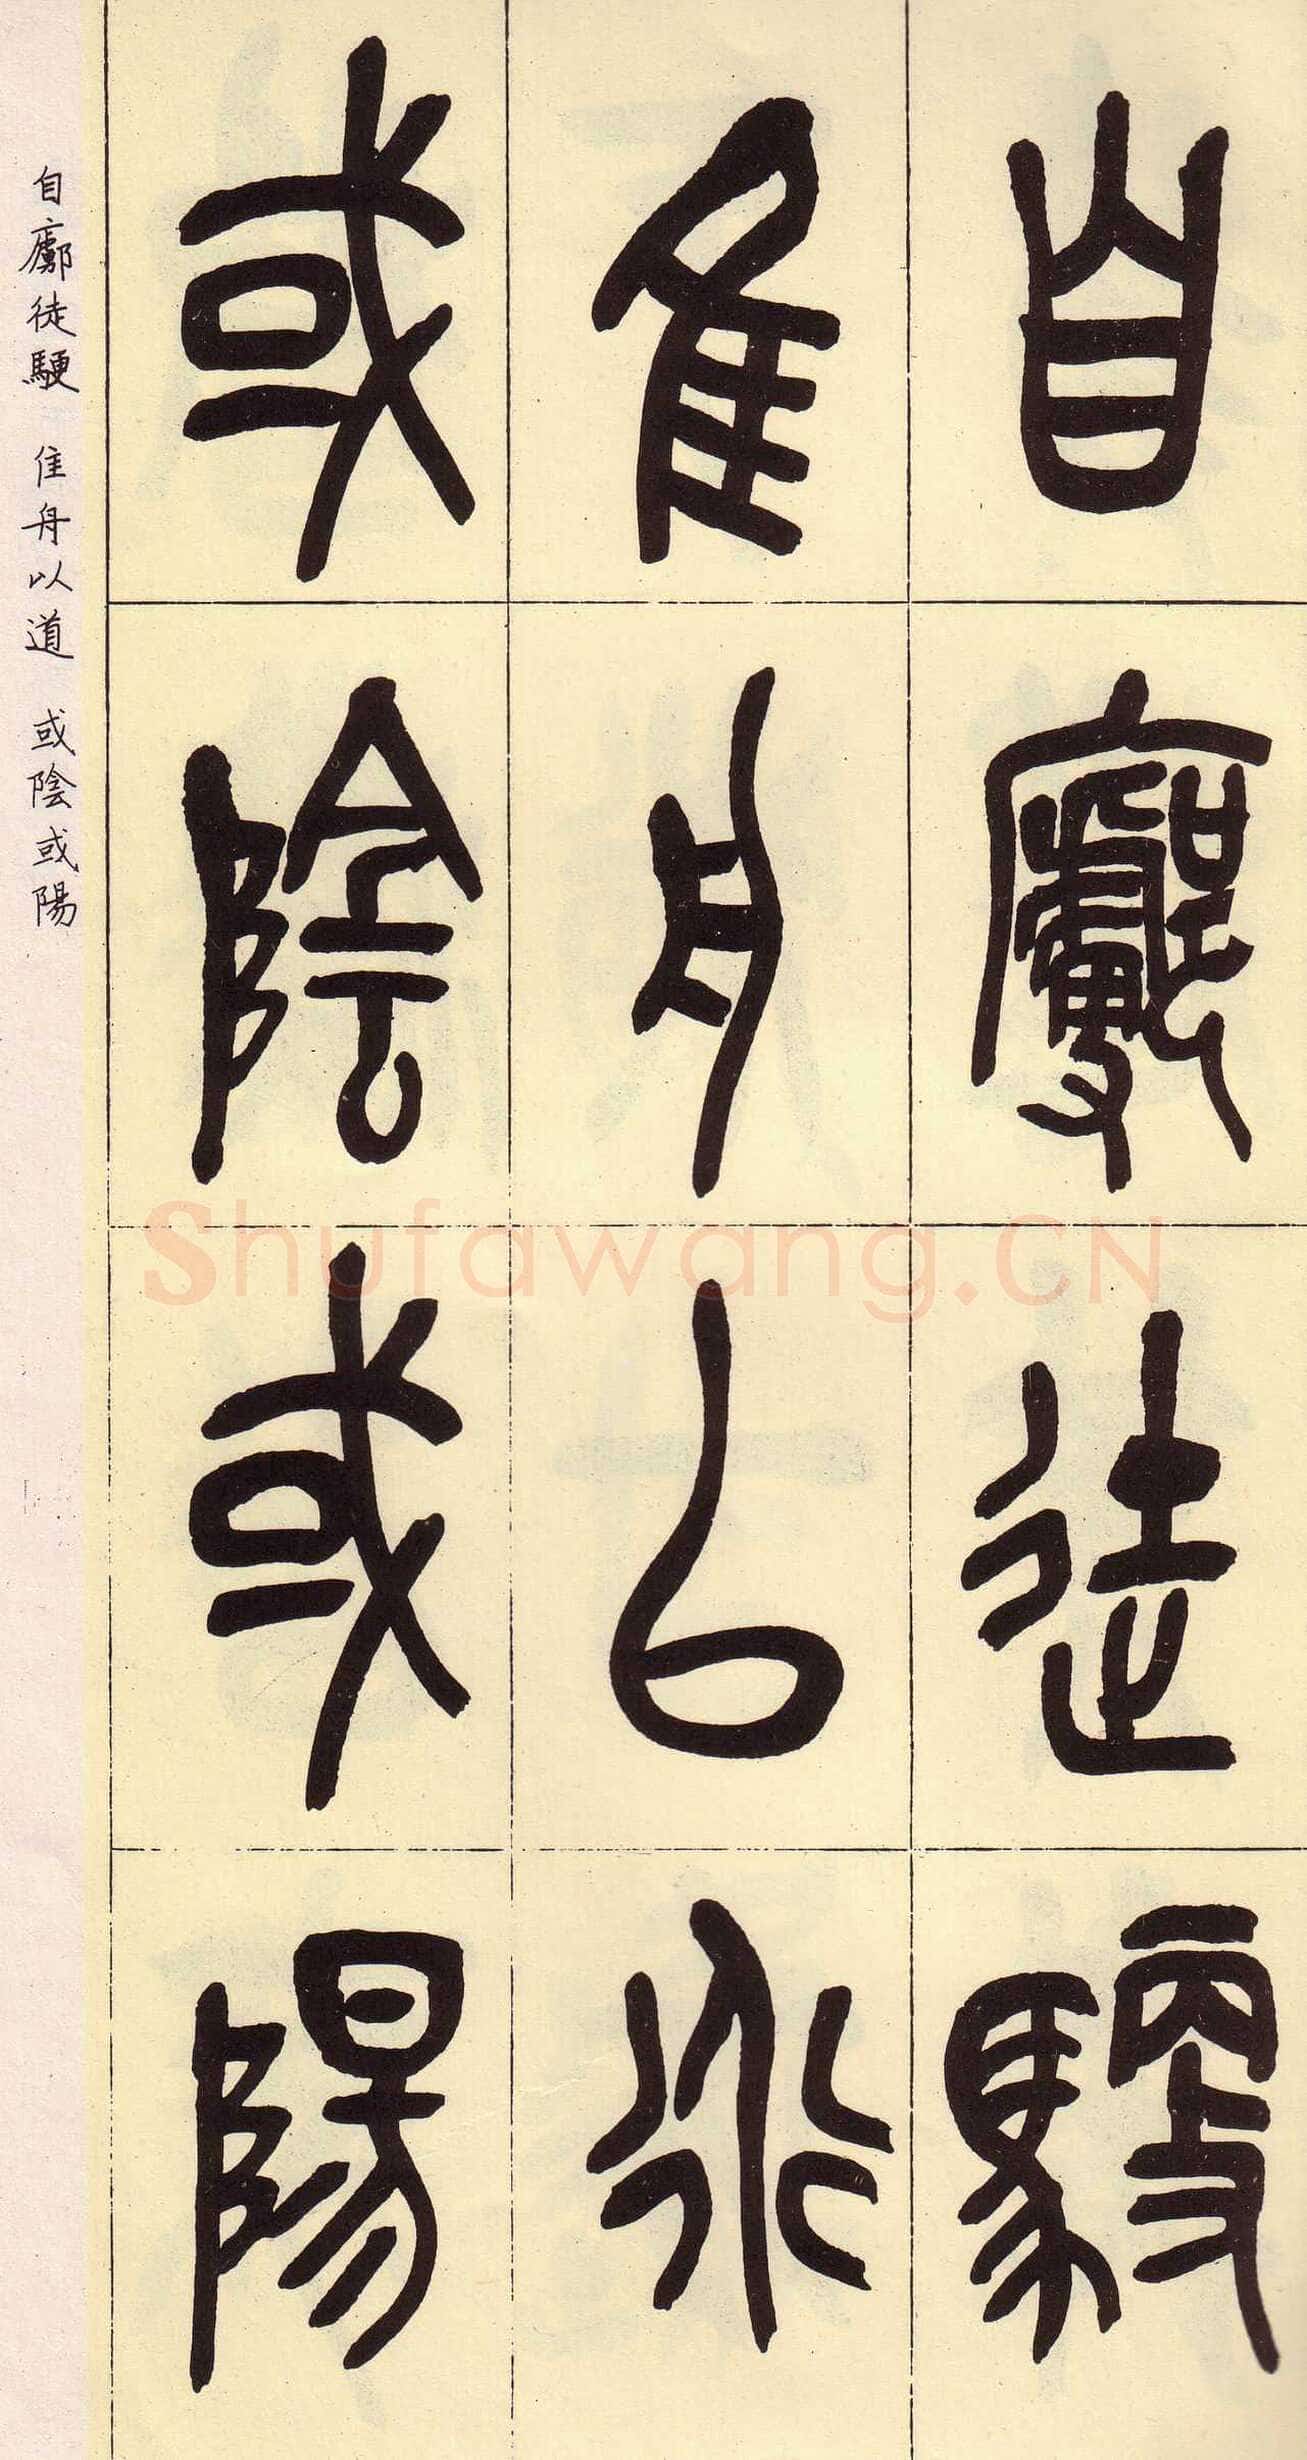 自廊徒驅
隹舟以道
或陰或陽
自廊徒驅 隹舟以道 或陰或陽
Shufawang.CN